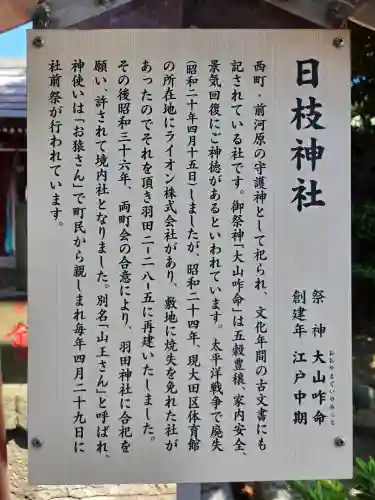 日枝神社
祭神 大山咋命
おおやまぐいのみこと
創建年 江戸中期
西町・前河原の守護神として祀られ、文化年間の古文書にも
記されている社です。御祭神「大山咋命」は五穀豊穣、家内安全、
景気回復にご神徳があるといわれています。太平洋戦争で廃失
(昭和二十年四月十五日)しましたが、昭和二十四年、現大田区体育館
の所在地にライオン株式会社があり、敷地に焼失を免れた社が
あったのでそれを頂き羽田二ー二八ー五に再建いたしました。
その後昭和三十六年、両町会の合意により、羽田神社に合祀を
願い、許されて境内社となりました。別名「山王さん」と呼ばれ、
神使いは「お猿さん」で町民から親しまれ毎年四月二十九日に
社前祭が行われています。